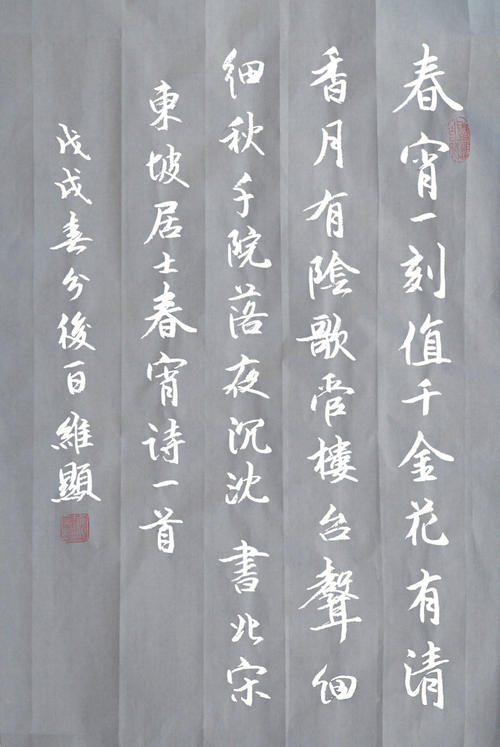 春宵一刻值千金花有清
香月有陰歌管樓台聲細
細秋千院落夜沉沈 書北宋
東坡居士春宵詩一首
戊戌春分後一日維顯